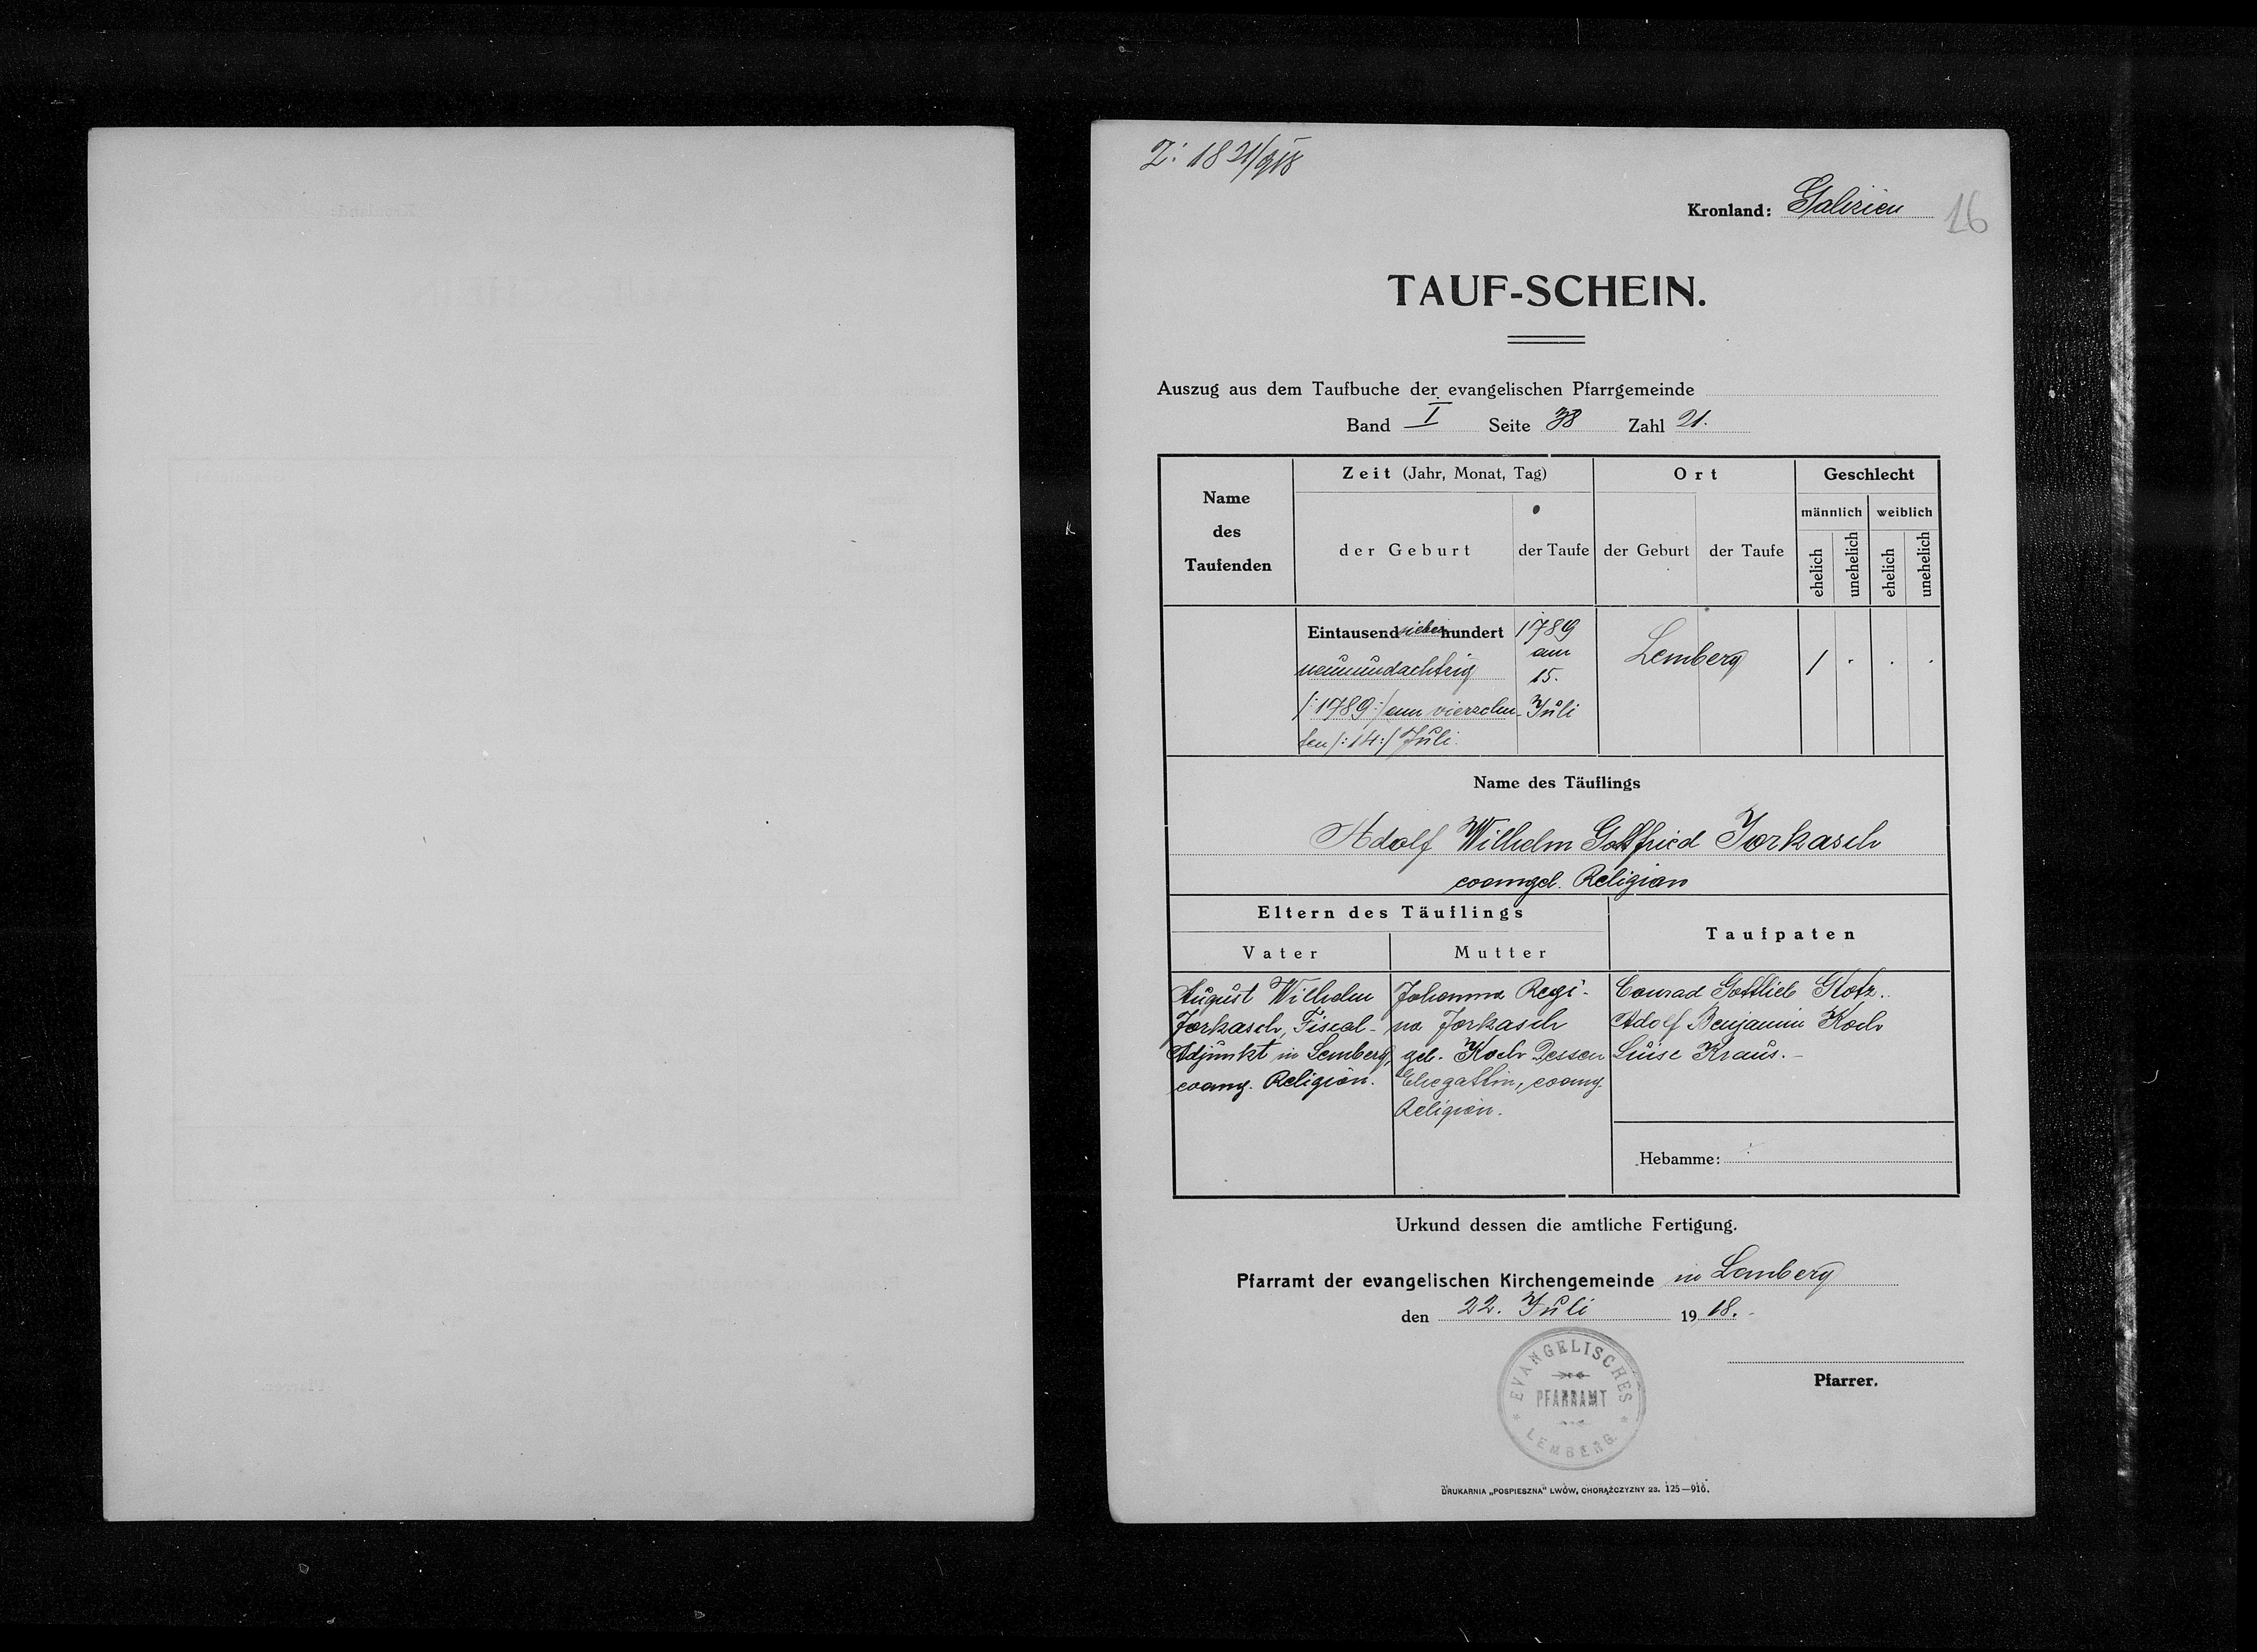 Z: 1821/918
Kronland: Galizien
16
TAUF-SCHEIN.
Auszug aus dem Taufbuche der evangelischen Pfarrgemeinde
Band I Seite 38 Zahl 21.
Name des Taufenden
Zeit (Jahr, Monat, Tag)
Ort
Geschlecht
männlich weiblich
der Geburt der Taufe der Geburt der Taufe
ehelich unehelich ehelich unehelich
Eintausendsiebenhundert
neunundachtzig
/:1789:/ am vierzehn-
ten /:14:/ Juli.
1789
am
15.
Juli
Lemberg
/ . . .
Name des Täuflings
Adolf Wilhelm Gottfried Jorkasch
evangel. Religion
Eltern des Täuflings
Taufpaten
Vater Mutter
August Wilhelm
Jorkasch, Fiscal-
Adjunkt in Lemberg,
evang. Religion.
Johanna Regi-
na Jorkasch
geb. Koch Dessen
Ehegattin, evang.
Religion.
Conrad Gottlieb Glotz.
Adolf Benjamin Koch
Luise Kraus.-
Hebamme:
Urkund dessen die amtliche Fertigung.
Pfarramt der evangelischen Kirchengemeinde in Lemberg
den 22. Juli 1918.
EVANGELISCHES
PFARRAMT
LEMBERG
Pfarrer.
DRUKARNIA „POSPIESZNA" LWÓW, CHORĄŻCZYZNY 23. 125—916.